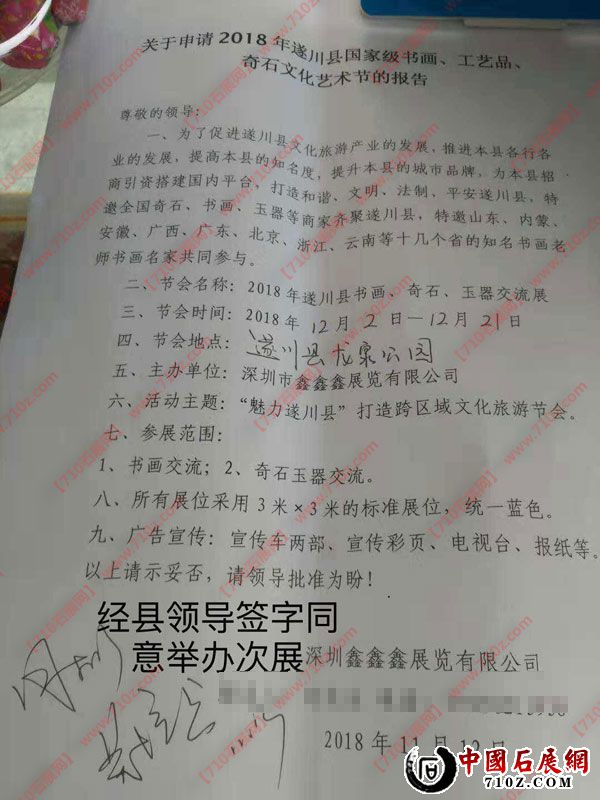 关于申请2018年遂川县国家级书画、工艺品、
奇石文化艺术节的报告
尊敬的领导：
一、为了促进遂川县文化旅游产业的发展，推进本县各行各
业的发展，提高本县的知名度，提升本县的城市品牌，为本县招
商引资搭建国内平台，打造和谐、文明、法制、平安遂川县，特
邀全国奇石、书画、玉器等商家齐聚遂川县，特邀山东、内蒙、
安徽、广西、广东、北京、浙江、云南等十几个省的知名书画老
师书画名家共同参与。
二、节会名称：2018年遂川县书画、奇石、玉器交流展
三、节会时间：2018年12月2日—12月21日
四、节会地点：遂川县龙泉公园
五、主办单位：深圳市鑫鑫鑫展览有限公司
六、活动主题：“魅力遂川县”打造跨区域文化旅游节会。
七、参展范围：
1、书画交流；2、奇石玉器交流。
八、所有展位采用3米×3米的标准展位，统一蓝色。
九、广告宣传：宣传车两部、宣传彩页、电视台、报纸等。
以上请示妥否，请领导批准为盼！
经县领导签字同
意举办次展
深圳鑫鑫鑫展览有限公司
2018年11月12日
中國石展網
710Z.COM
【710石展网】www.710z.com